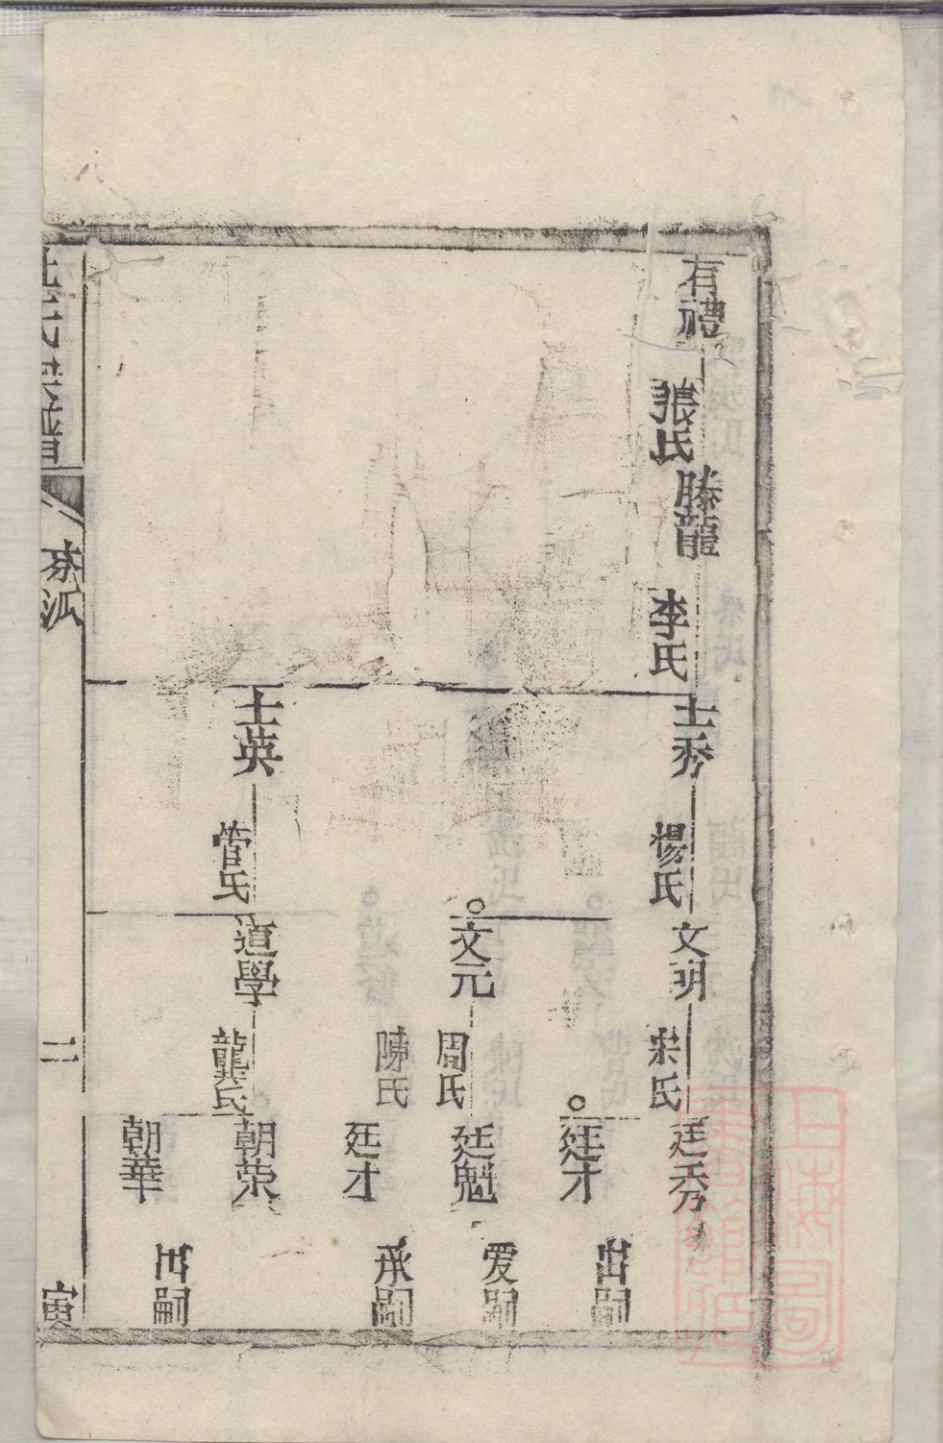 有禮
張氏
騰龍
李氏
士秀
楊氏
文明
宋氏
廷秀
廷才
出嗣
文元
周氏
陳氏
廷魁
爱嗣
廷才
承嗣
士英
管氏
道學
龔氏
朝荣
朝華
出嗣
氏宗譜
宗派
二
寅
上海圖